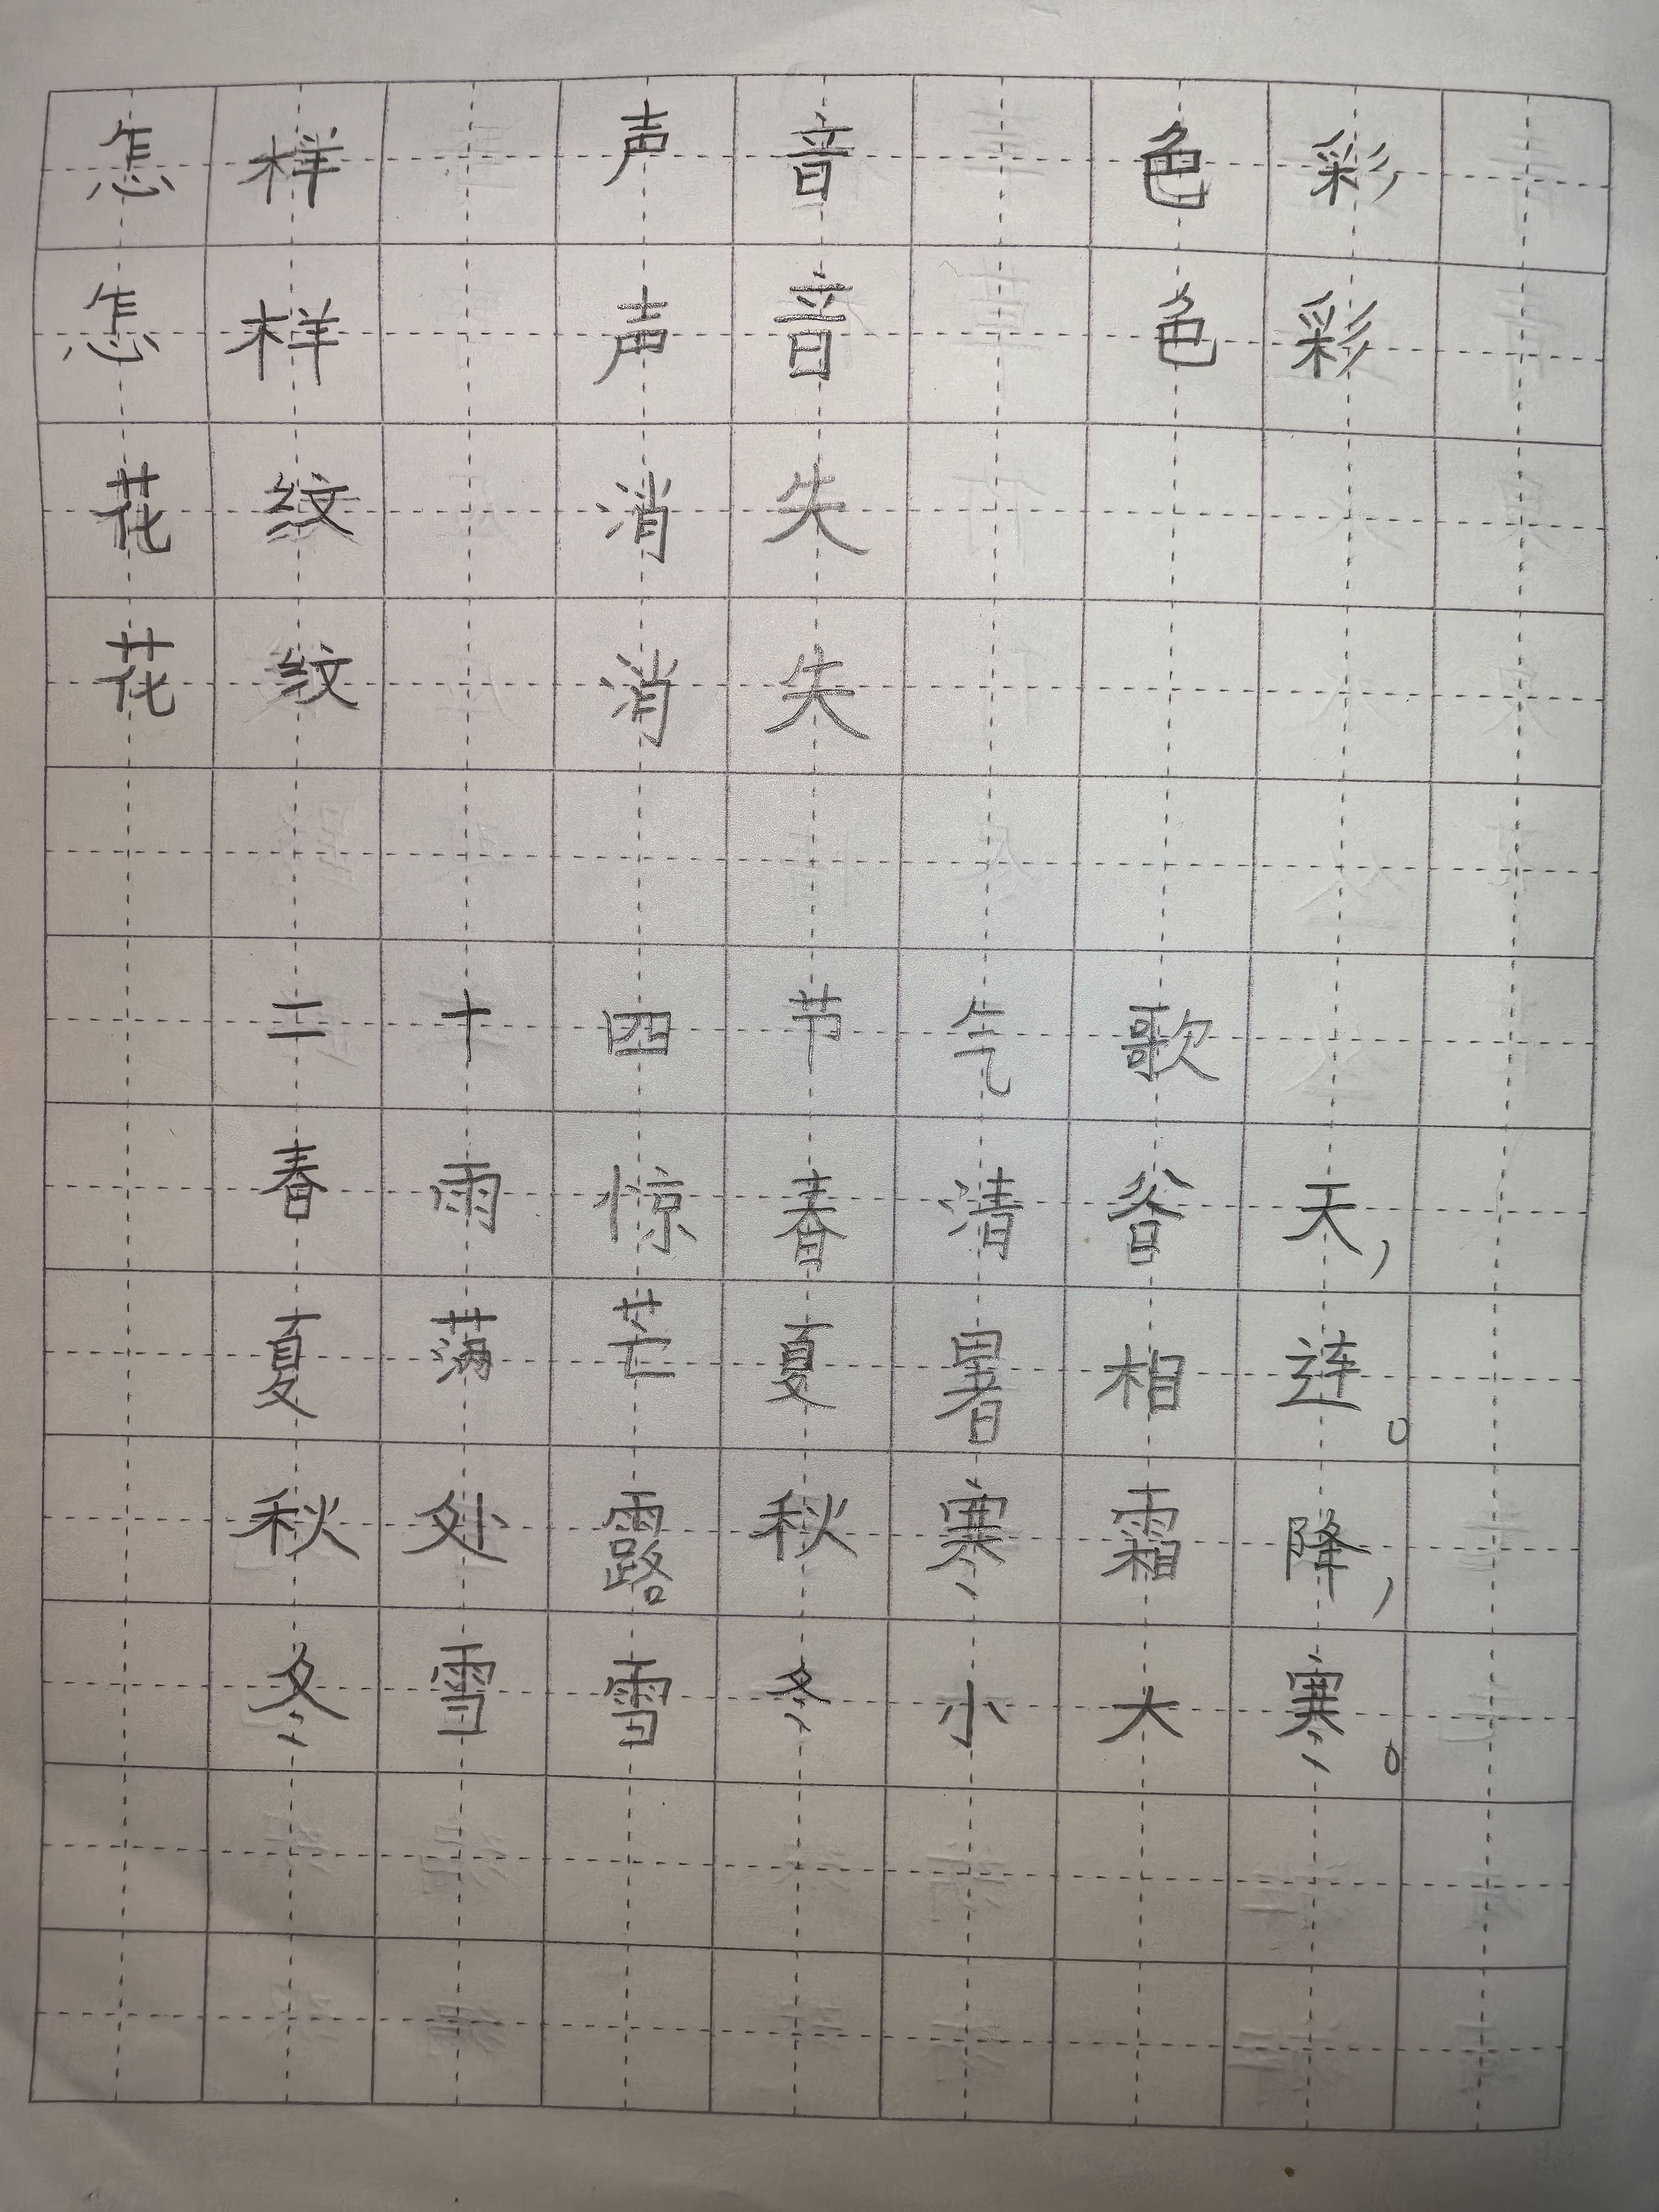 怎样 声音 色彩
怎样 声音 色彩
花纹 消失
花纹 消失
二十四节气歌
春雨惊春清谷天,
夏满芒夏暑相连。
秋处露秋寒霜降,
冬雪雪冬小大寒。